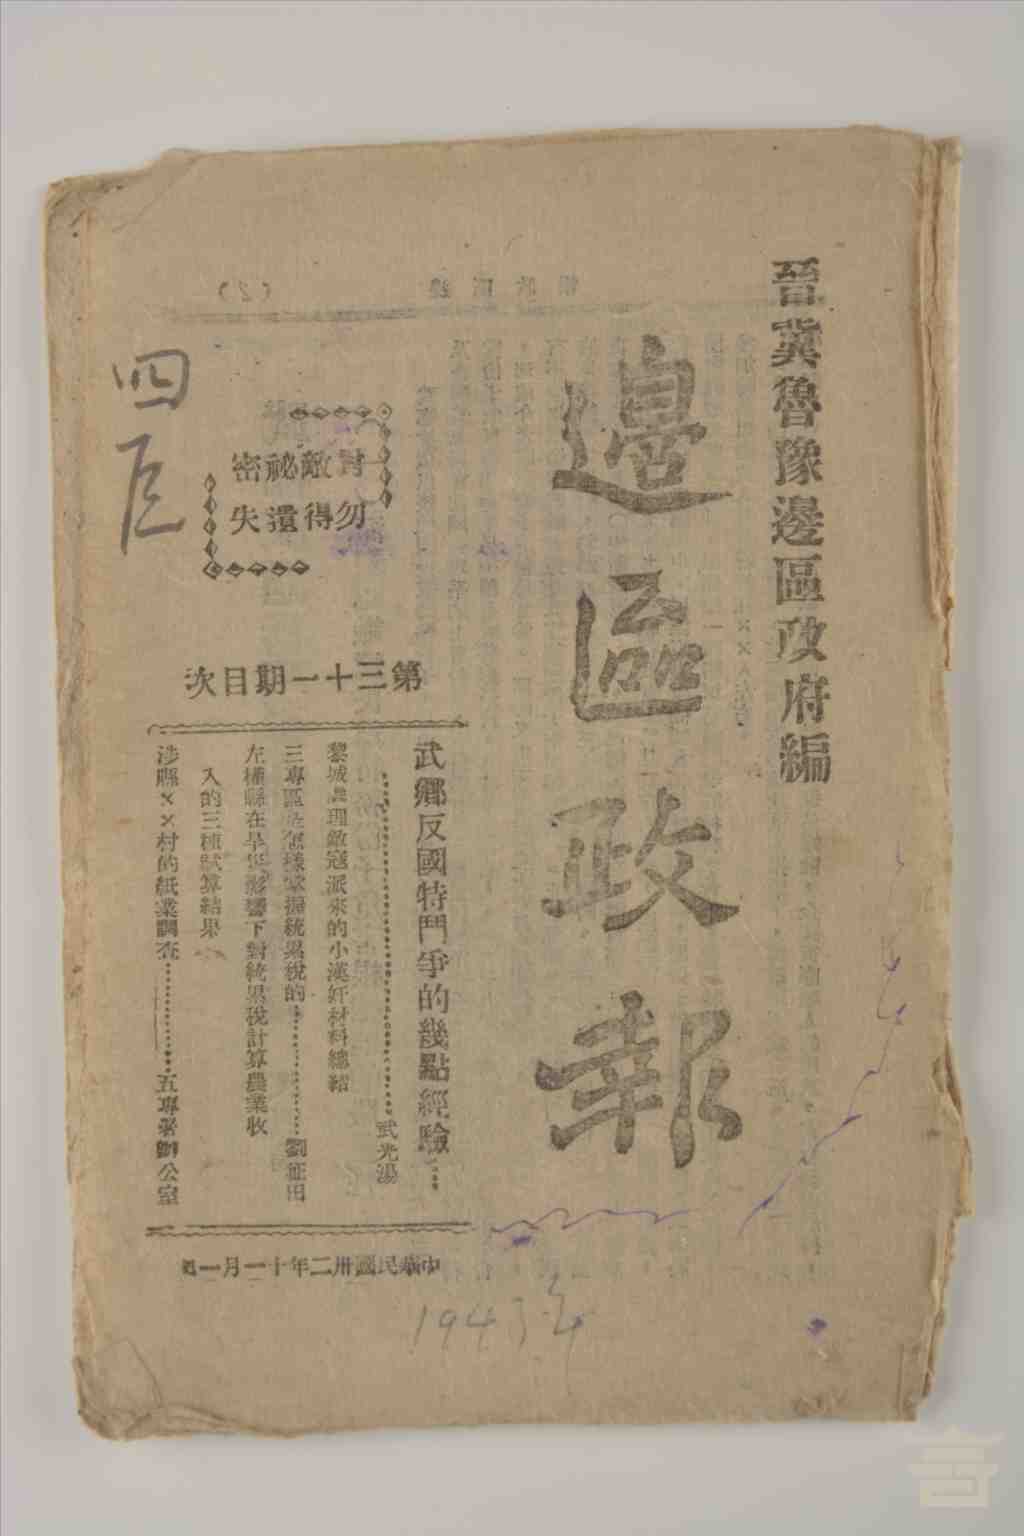 晉冀魯豫邊區政府編
邊區政報
對敵祕密
勿得遺失
四
第三十一期目次
武鄉反國特鬥爭的幾點經驗……
……武光湯
黎城處理敵寇派來的小漢奸材料總結
三專區是怎樣掌握統累稅的……劉征田
左權縣在旱災影響下對統累稅計算農業收
入的三種試算結果
涉縣××村的紙業調查……五專署辦公室
中華民國卅二年十一月一
1943年
(2)